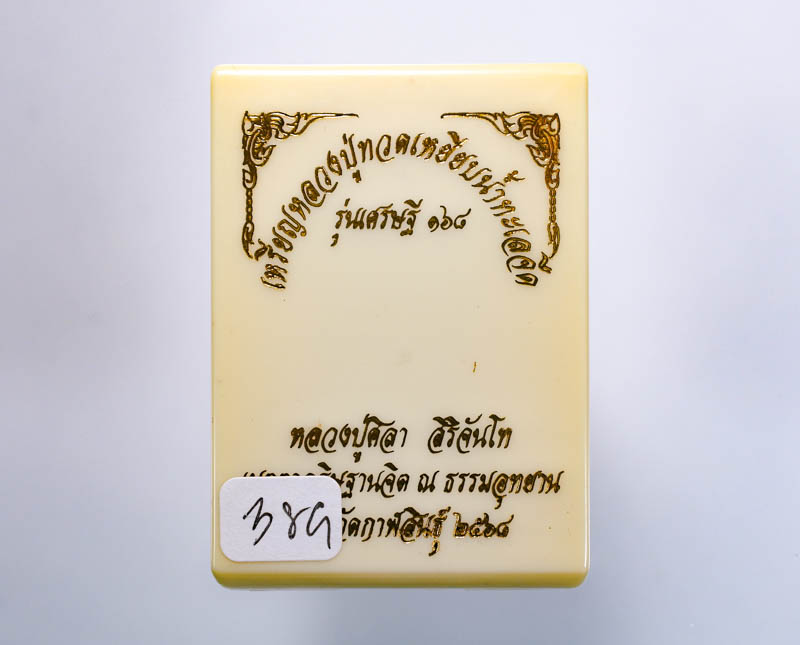 เหรียญหลวงปู่ทวดเหยียบน้ำทะเลจืด
รุ่นเศรษฐี ๑๖๘
หลวงปู่ศิลา สิริจันโท
ณ ธรรมอุทยาน
กาฬสินธุ์ ๒๕๖๘